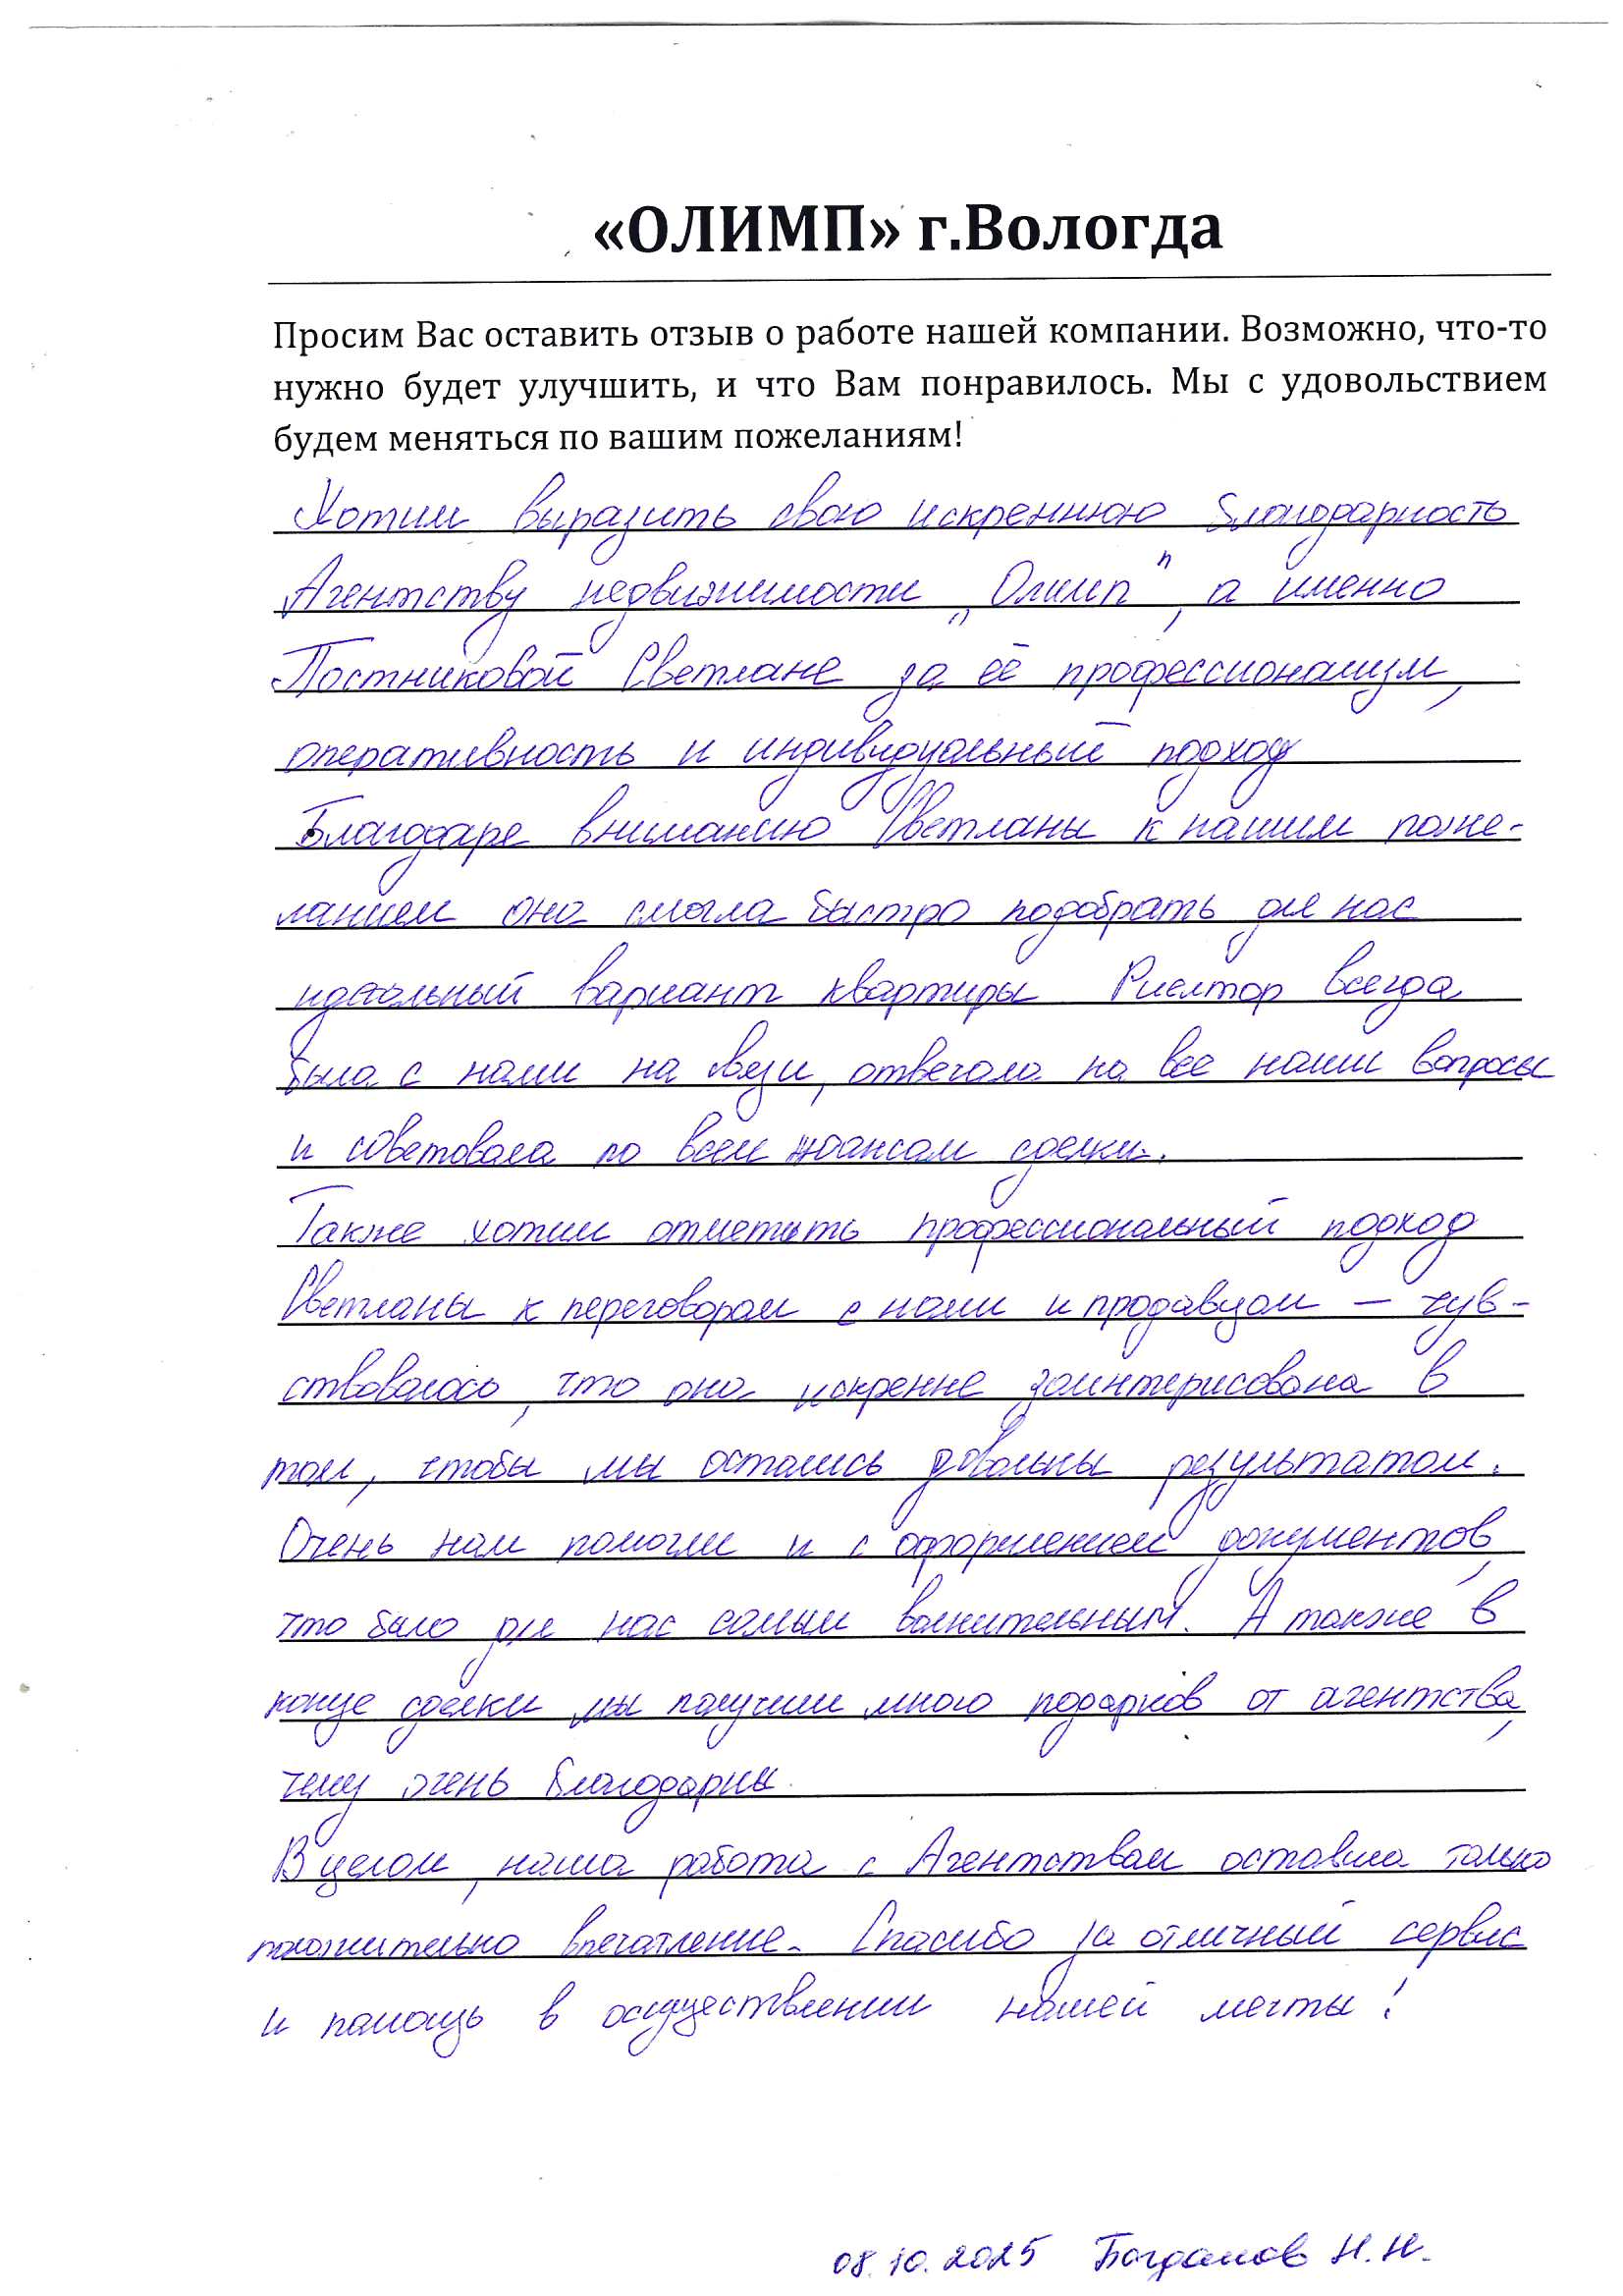 «ОЛИМП» г.Вологда
Просим Вас оставить отзыв о работе нашей компании. Возможно, что-то
нужно будет улучшить, и что Вам понравилось. Мы с удовольствием
будем меняться по вашим пожеланиям!
Хотим выразить свою искреннюю благодарность
Агентству недвижимости „Олимп", а именно
Постниковой Светлане за её профессионализм,
оперативность и индивидуальный подход
Благодаре вниманию Светланы к нашим поже-
ланием она смогла быстро подобрать для нас
идеальный вариант квартиры Риелтор всегда
была с нами на связи, отвечала на все наши вопросы
и советовала по всем нюансам сделки.
Также хотим отметить профессиональный подход
Светланы к переговорам с нами и продавцом – чув-
ствовалось, что она искренне заинтерисована в
том, чтобы мы остались довольны результатом.
Очень нам помогли и с оформлением документов,
что было для нас самым волнительным. А также в
конце сделки мы получили много подарков от агентства,
чему очень благодарны.
В целом, наша работа с Агентством оставила только
положительно впечатление. Спасибо за отличный сервис
и помощь в осуществлении нашей мечты!
08.10.2025 Богданов Н.Н.